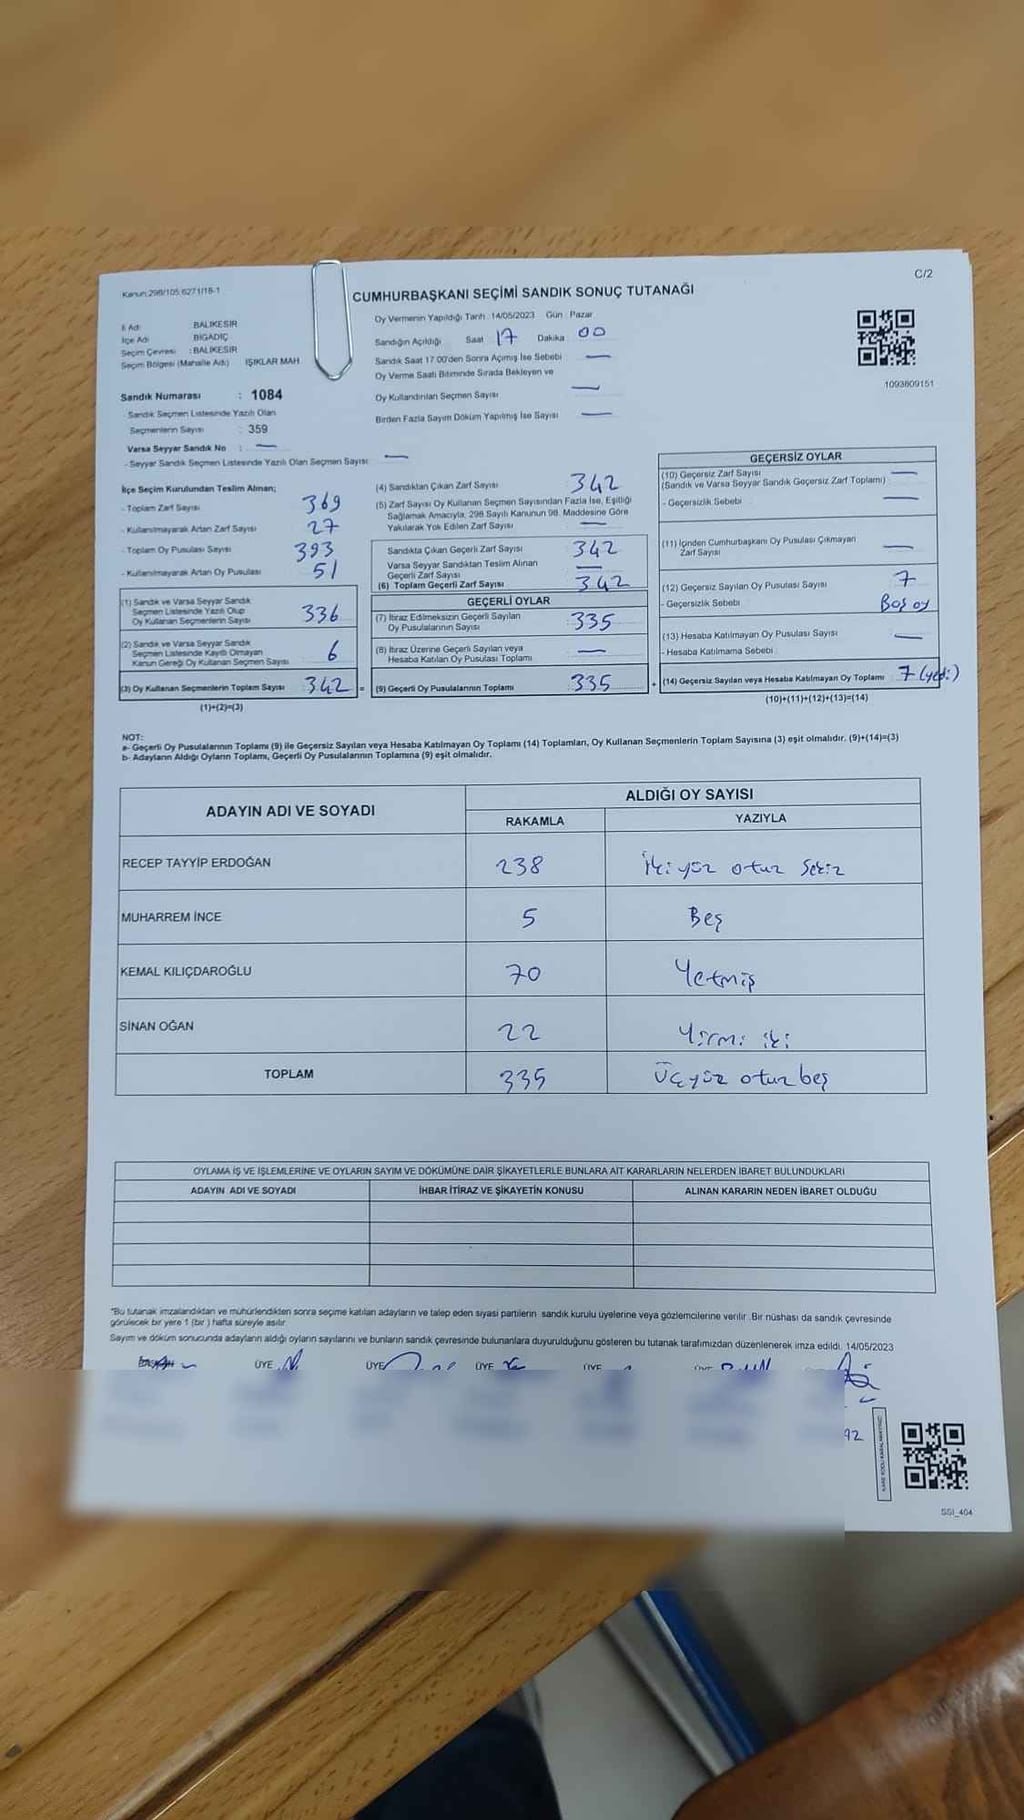 Kanun:298/105;6271/18-1
C/2
CUMHURBAŞKANI SEÇİMİ SANDIK SONUÇ TUTANAĞI
İl Adı BALIKESİR
İlçe Adı BİGADİÇ
Seçim Çevresi : BALIKESİR
Seçim Bölgesi (Mahalle Adı) IŞIKLAR MAH
Sandık Numarası : 1084
- Sandık Seçmen Listesinde Yazılı Olan
Seçmenlerin Sayısı : 359
Varsa Seyyar Sandık No : —
- Seyyar Sandık Seçmen Listesinde Yazılı Olan Seçmen Sayısı: —
Oy Vermenin Yapıldığı Tarih :14/05/2023 Gün : Pazar
Sandığın Açıldığı Saat 17 Dakika 00
Sandık Saat 17.00'den Sonra Açılmış İse Sebebi —
Oy Verme Saati Bitiminde Sırada Bekleyen ve
Oy Kullandırılan Seçmen Sayısı —
Birden Fazla Sayım Döküm Yapılmış İse Sayısı —
1093609151
İlçe Seçim Kurulundan Teslim Alınan;
- Toplam Zarf Sayısı 369
- Kullanılmayarak Artan Zarf Sayısı 27
- Toplam Oy Pusulası Sayısı 393
- Kullanılmayarak Artan Oy Pusulası 51
(1) Sandık ve Varsa Seyyar Sandık
Seçmen Listesinde Yazılı Olup
Oy Kullanan Seçmenlerin Sayısı 336
(2) Sandık ve Varsa Seyyar Sandık
Seçmen Listesinde Kayıtlı Olmayan
Kanun Gereği Oy Kullanan Seçmen Sayısı 6
(3) Oy Kullanan Seçmenlerin Toplam Sayısı 342 =
(1)+(2)=(3)
(4) Sandıktan Çıkan Zarf Sayısı 342
(5) Zarf Sayısı Oy Kullanan Seçmen Sayısından Fazla İse, Eşitliği
Sağlamak Amacıyla, 298 Sayılı Kanunun 98. Maddesine Göre
Yakılarak Yok Edilen Zarf Sayısı —
Sandıkta Çıkan Geçerli Zarf Sayısı 342
Varsa Seyyar Sandıktan Teslim Alınan
Geçerli Zarf Sayısı —
(6) Toplam Geçerli Zarf Sayısı 342
GEÇERLİ OYLAR
(7) İtiraz Edilmeksizin Geçerli Sayılan
Oy Pusulalarının Sayısı 335
(8) İtiraz Üzerine Geçerli Sayılan veya
Hesaba Katılan Oy Pusulası Toplamı —
(9) Geçerli Oy Pusulalarının Toplamı 335 +
GEÇERSİZ OYLAR
(10) Geçersiz Zarf Sayısı —
(Sandık ve Varsa Seyyar Sandık Geçersiz Zarf Toplamı)
- Geçersizlik Sebebi —
(11) İçinden Cumhurbaşkanı Oy Pusulası Çıkmayan
Zarf Sayısı —
(12) Geçersiz Sayılan Oy Pusulası Sayısı 7
- Geçersizlik Sebebi Boş oy
(13) Hesaba Katılmayan Oy Pusulası Sayısı —
- Hesaba Katılmama Sebebi
(14) Geçersiz Sayılan veya Hesaba Katılmayan Oy Toplamı 7 (yedi)
(10)+(11)+(12)+(13)=(14)
NOT:
a- Geçerli Oy Pusulalarının Toplamı (9) ile Geçersiz Sayılan veya Hesaba Katılmayan Oy Toplamı (14) Toplamları, Oy Kullanan Seçmenlerin Toplam Sayısına (3) eşit olmalıdır. (9)+(14)=(3)
b- Adayların Aldığı Oyların Toplamı, Geçerli Oy Pusulalarının Toplamına (9) eşit olmalıdır.
ADAYIN ADI VE SOYADI ALDIĞI OY SAYISI
RAKAMLA YAZIYLA
RECEP TAYYİP ERDOĞAN 238 İkiyüz otuz sekiz
MUHARREM İNCE 5 Beş
KEMAL KILIÇDAROĞLU 70 Yetmiş
SİNAN OĞAN 22 Yirmi iki
TOPLAM 335 Üçyüz otuz beş
OYLAMA İŞ VE İŞLEMLERİNE VE OYLARIN SAYIM VE DÖKÜMÜNE DAİR ŞİKAYETLERLE BUNLARA AİT KARARLARIN NELERDEN İBARET BULUNDUKLARI
ADAYIN ADI VE SOYADI İHBAR İTİRAZ VE ŞİKAYETİN KONUSU ALINAN KARARIN NEDEN İBARET OLDUĞU
*Bu tutanak imzalandıktan ve mühürlendikten sonra seçime katılan adayların ve talep eden siyasi partilerin sandık kurulu üyelerine veya gözlemcilerine verilir. Bir nüshası da sandık çevresinde
görülecek bir yere 1 (bir) hafta süreyle asılır.
Sayım ve döküm sonucunda adayların aldığı oyların sayılarını ve bunların sandık çevresinde bulunanlara duyurulduğunu gösteren bu tutanak tarafımızdan düzenlenerek imza edildi. 14/05/2023
BAŞKAN ÜYE ÜYE ÜYE ÜYE
92
SSI_404